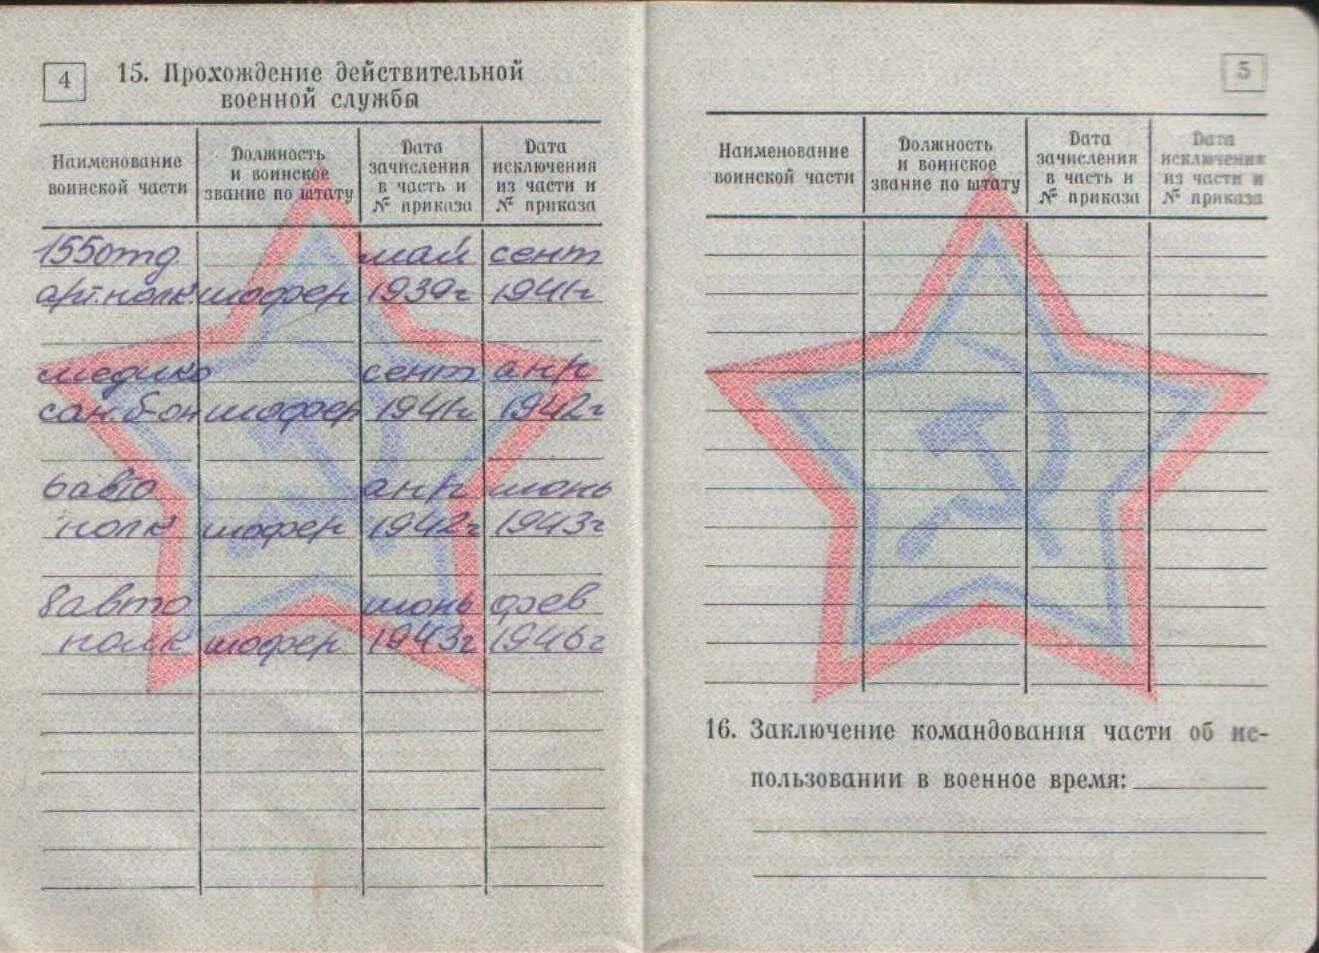 4
15. Прохождение действительной
военной службы
Наименование воинской части
Должность и воинское звание по штату
Дата зачисления в часть и № приказа
Дата исключения из части и № приказа
155отд май сент
арт.полк шофер 1939г 1941г
медико сент апр
сан б-он шофер 1941г 1942г
6 авто апр июнь
полк шофер 1942г 1943г
8 авто июнь фев
полк шофер 1943г 1946г
5
Наименование воинской части
Должность и воинское звание по штату
Дата зачисления в часть и № приказа
Дата исключения из части и № приказа
16. Заключение командования части об ис-
пользовании в военное время: